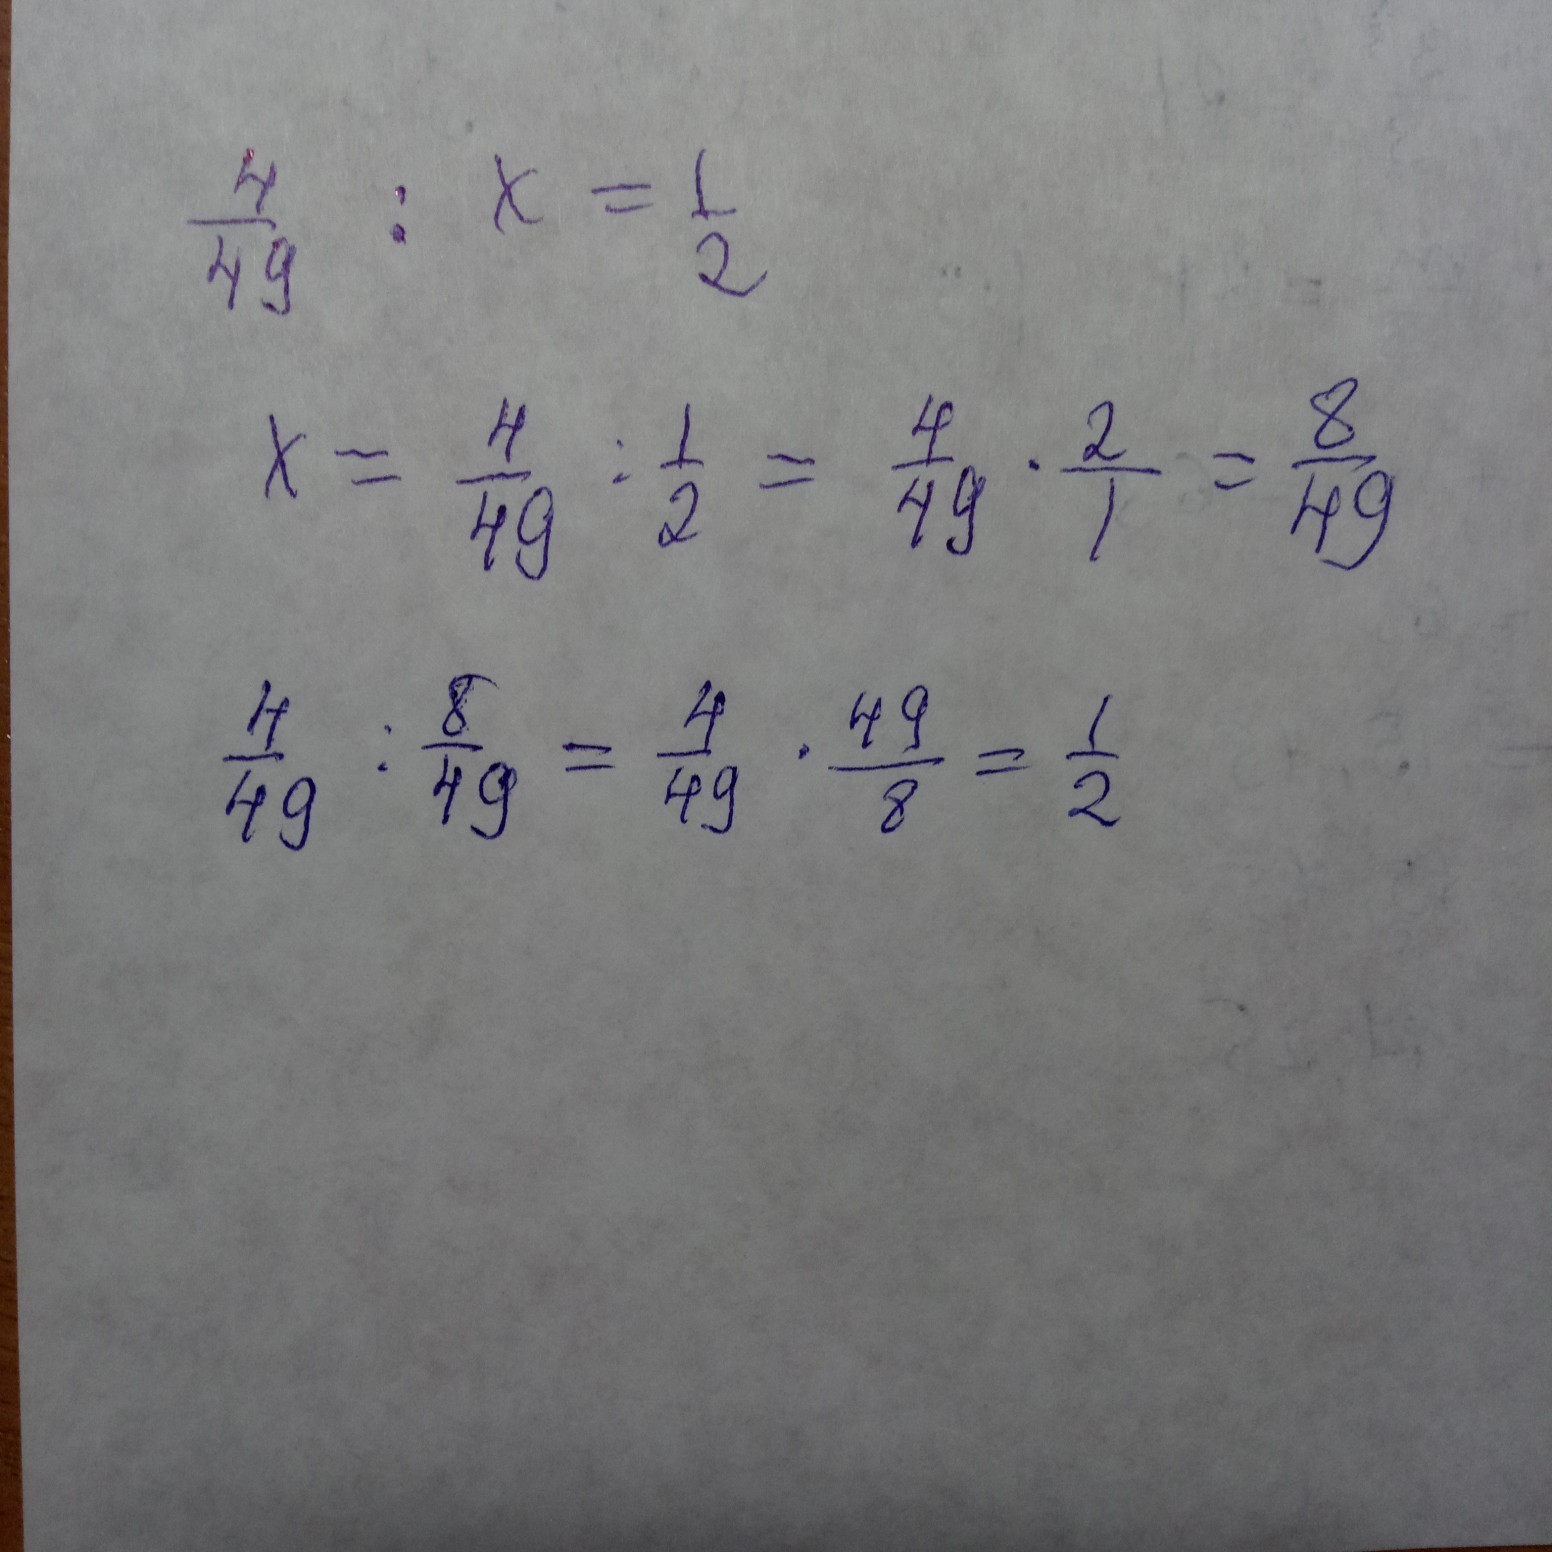 4/49 : x = 1/2
x = 4/49 : 1/2 = 4/49 · 2/1 = 8/49
4/49 : 8/49 = 4/49 · 49/8 = 1/2